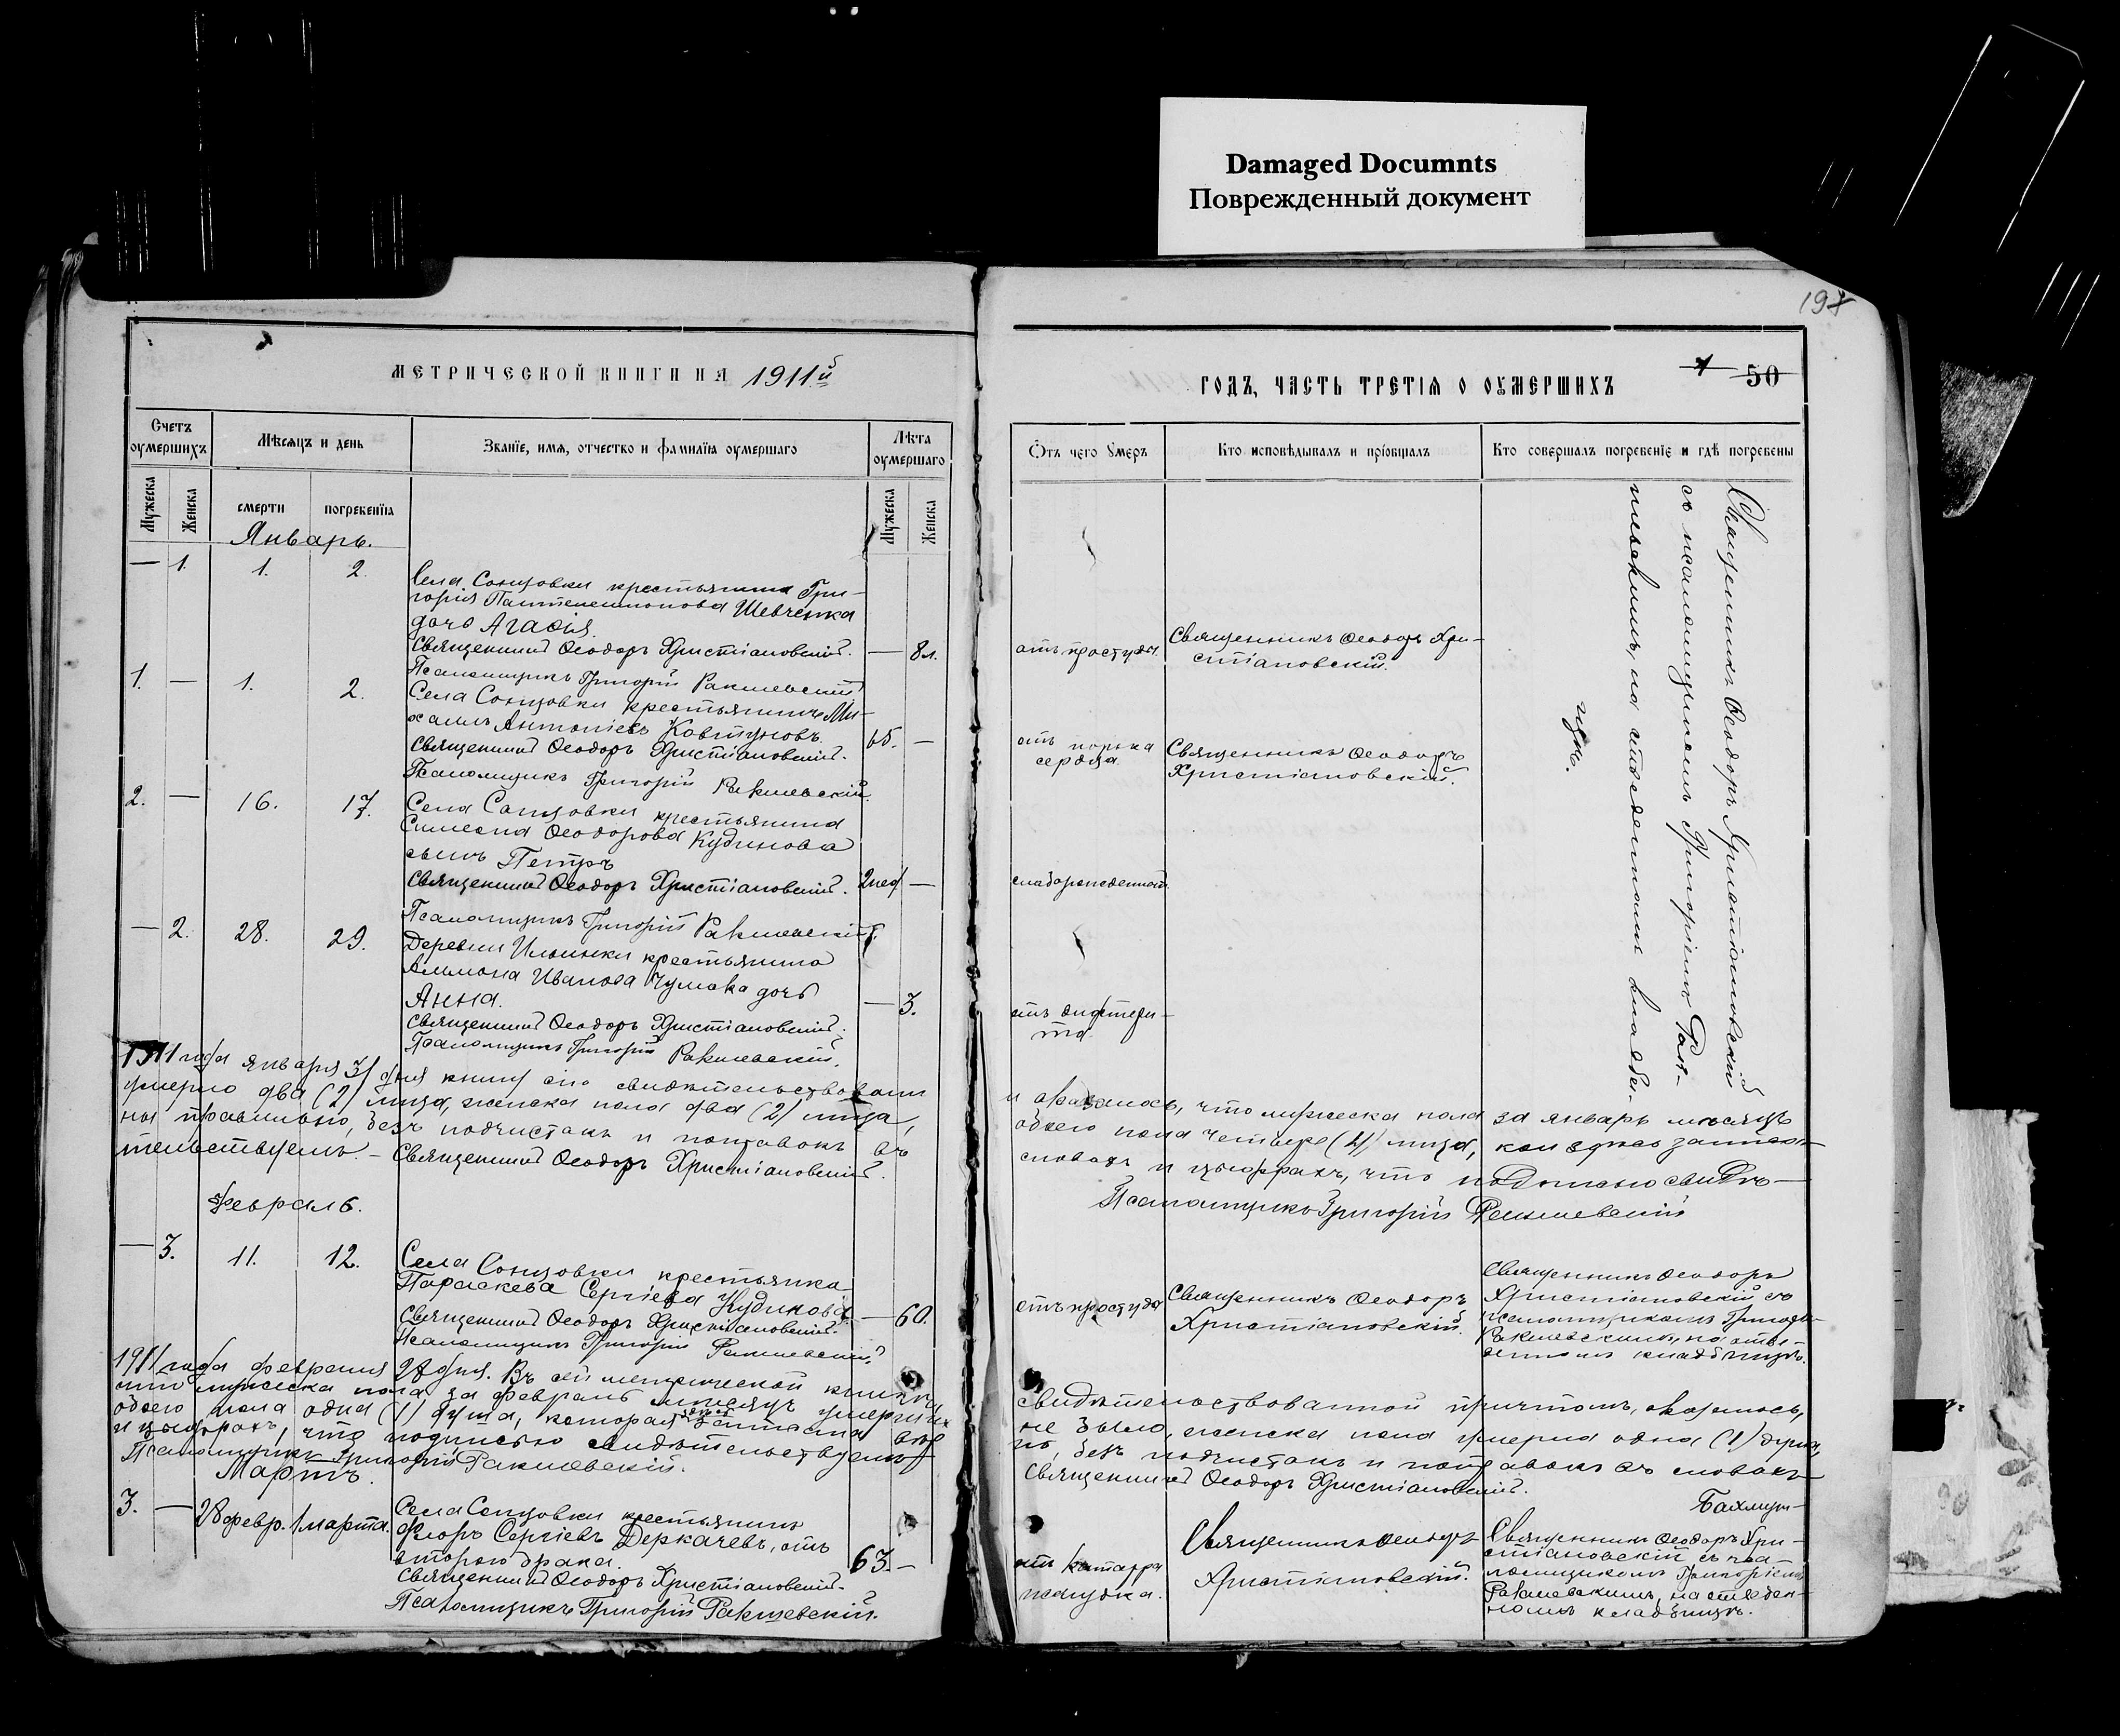 Damaged Documnts
Поврежденный документ
197
МЕТРИЧЕСКОЙ КНИГИ НА 1911й
ГОДЪ, ЧАСТЬ ТРЕТІѦ О ОУМЕРШИХЪ
50
Счетъ оумершихъ
Мѣсяцъ и день
Званїе, имѧ, отчество и фамилїѧ оумершаго
Лѣта оумершаго
Отъ чего умеръ
Кто исповѣдывалъ и прїобщалъ
Кто совершалъ погребенїе и гдѣ погребены
Мужеска
Женска
смерти
погребенїѧ
Мужеска
Женска
Январь.
— 1. 1. 2.
Села Сонцовки крестьянина Гри-
горія Пантелеимонова Шевченка
дочь Агафія.
Священникъ Ѳеодоръ Христіановскій. — 8 л.
Псаломщикъ Григорій Ракшевскій
отъ простуды.
Священникъ Ѳеодоръ Хри-
стіановскій.
1. — 1. 2.
Села Сонцовки крестьянинъ Ми-
хаилъ Антоніевъ Ковтуновъ.
Священникъ Ѳеодоръ Христіановскій. 65. —
Псаломщикъ Григорій Ракшевскій.
отъ порока
сердца.
Священникъ Ѳеодоръ
Христіановскій.
2. — 16. 17.
Села Сонцовки крестьянина
Симеона Ѳеодорова Кудинова
сынъ Петръ
Священникъ Ѳеодоръ Христіановскій. 2 нед —
Псаломщикъ Григорій Ракшевскій.
слаборожденност.
— 2. 28. 29.
Деревни Ильинки крестьянина
Ивanова Чумака дочь
Анна. — 3.
Священникъ Ѳеодоръ Христіановскій.
Псаломщикъ Григорій Ракшевскій.
отъ дифтери-
та
Священникъ Ѳеодоръ Христіановскій
съ псаломщикомъ Григоріемъ Рак-
шевскимъ, на отведенномъ кладби-
щѣ.
1911 года января 31 дня книгу сію свидѣтельствовали
и оказалось, что мужеска пола за январь мѣсяцъ
умерло два (2) лица, женска пола два (2) лица,
обоего пола четыре (4) лица, кои записа-
ны правильно, безъ подчистокъ и поправокъ въ
словахъ и цыфрахъ, что подписью свидѣ-
тельствуемъ. – Священникъ Ѳеодоръ Христіановскій.
Псаломщикъ Григорій Ракшевскій
Февраль.
— 3. 11. 12.
Села Сонцовки крестьянка
Параскева Сергіева Кудинова.
Священникъ Ѳеодоръ Христіановскій. — 60.
Псаломщикъ Григорій Ракшевскій.
отъ простуды
Священникъ Ѳеодоръ
Христіановскій.
Священникъ Ѳеодоръ
Христіановскій съ
псаломщикомъ
Ракшевскимъ, на отве-
денномъ кладбищѣ.
1911 года февраля 28 дня. Въ сей метрической книгѣ,
свидѣтельствованной причтомъ, оказалось,
что мужеска пола за февраль мѣсяцъ умершихъ
не было, женска пола умерла одна (1) душа,
обоего пола одна (1) душа, которая записана
безъ подчистокъ и поправокъ въ словахъ
и цыфрахъ, что подписью свидѣтельствуемъ
Священникъ Ѳеодоръ Христіановскій.
Псаломщикъ Григорій Ракшевскій.
Мартъ.
3. — 28 февр. 1 марта.
Села Сонцовки крестьянинъ
Флоръ Сергіевъ Деркачевъ, отъ
второго брака. 63. –
Священникъ Ѳеодоръ Христіановскій.
Псаломщикъ Григорій Ракшевскій.
отъ катарра
желудка.
Священникъ Ѳеодоръ
Христіановскій.
Священникъ Ѳеодоръ Хри-
стіановскій съ пса-
ломщикомъ Григоріемъ
Ракшевскимъ, на отведен-
номъ кладбищѣ.